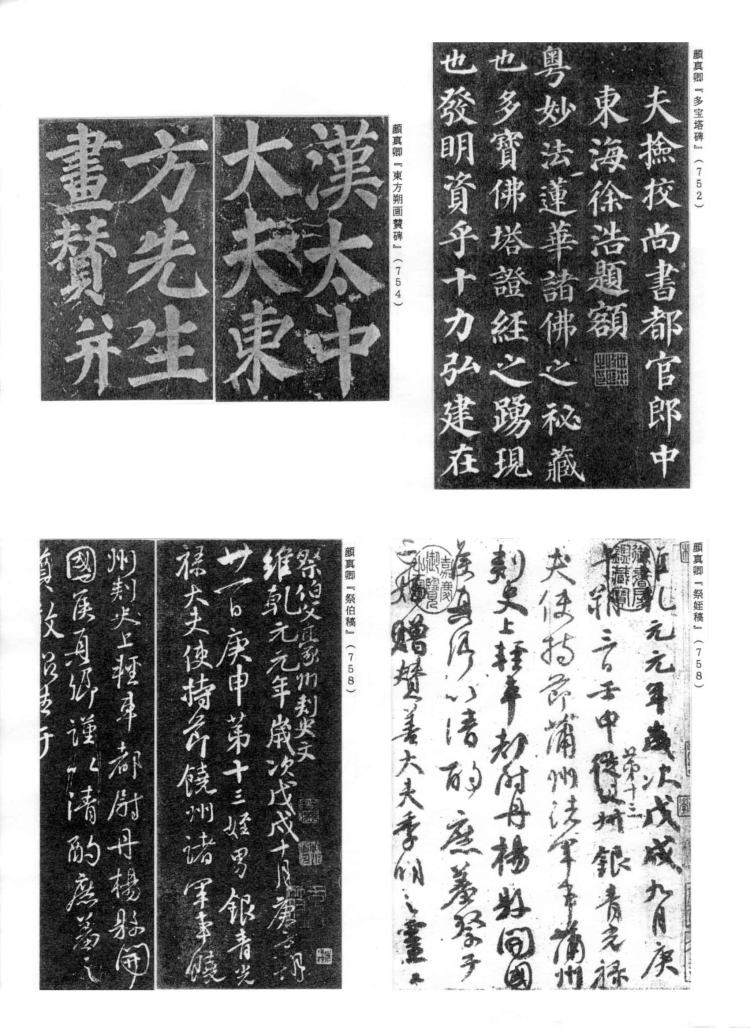 顔真卿『多宝塔碑』（752）
夫撿挍尚書都官郎中
東海徐浩題額
粤妙法蓮華諸佛之祕藏
也多寶佛塔證經之踴現
也發明資乎十力弘建在
顔真卿『東方朔画賛碑』（754）
漢太中
大夫東
方先生
畫賛并
顔真卿『祭姪稿』（758）
維乾元元年歳次戊戌九月庚
午朔三日壬申第十三從父銀青光禄
夫使持節蒲州諸軍事蒲州
刺史上輕車都尉丹楊縣開國
侯真卿以清酌庶羞祭于
亡姪贈賛善大夫季明之靈
顔真卿『祭伯稿』（758）
祭伯父豪州刺史文
維乾元元年歳次戊戌十月庚子朔
廿一日庚申第十三姪男銀青光
禄大夫使持節饒州諸軍事饒
州刺史上輕車都尉丹楊縣開
國侯真卿謹以清酌庶羞之